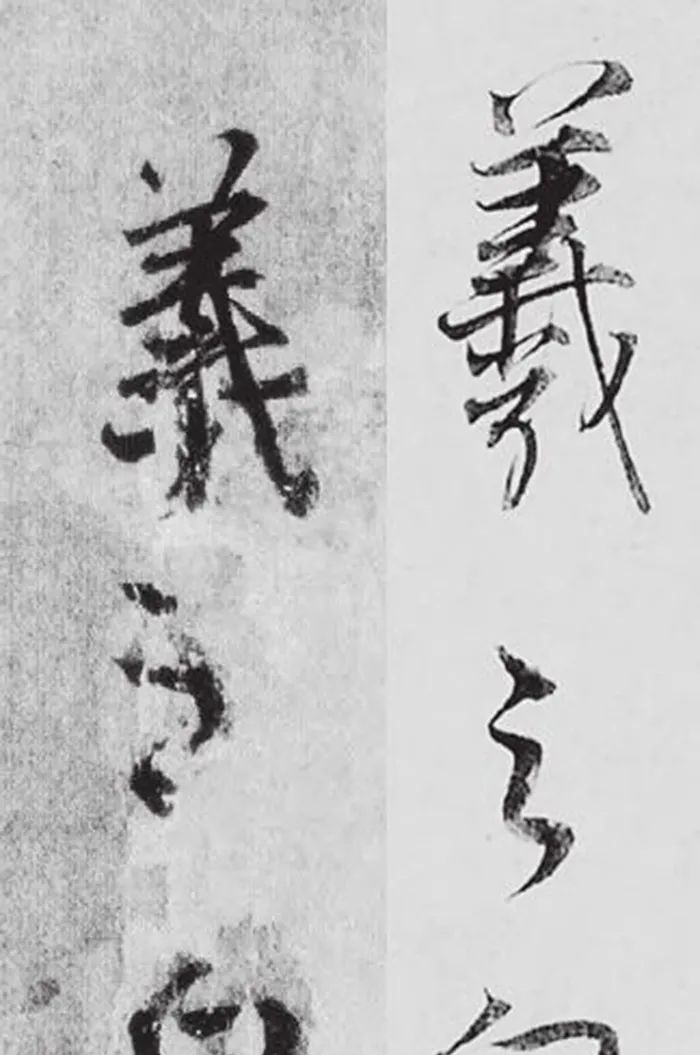 羲之
羲之